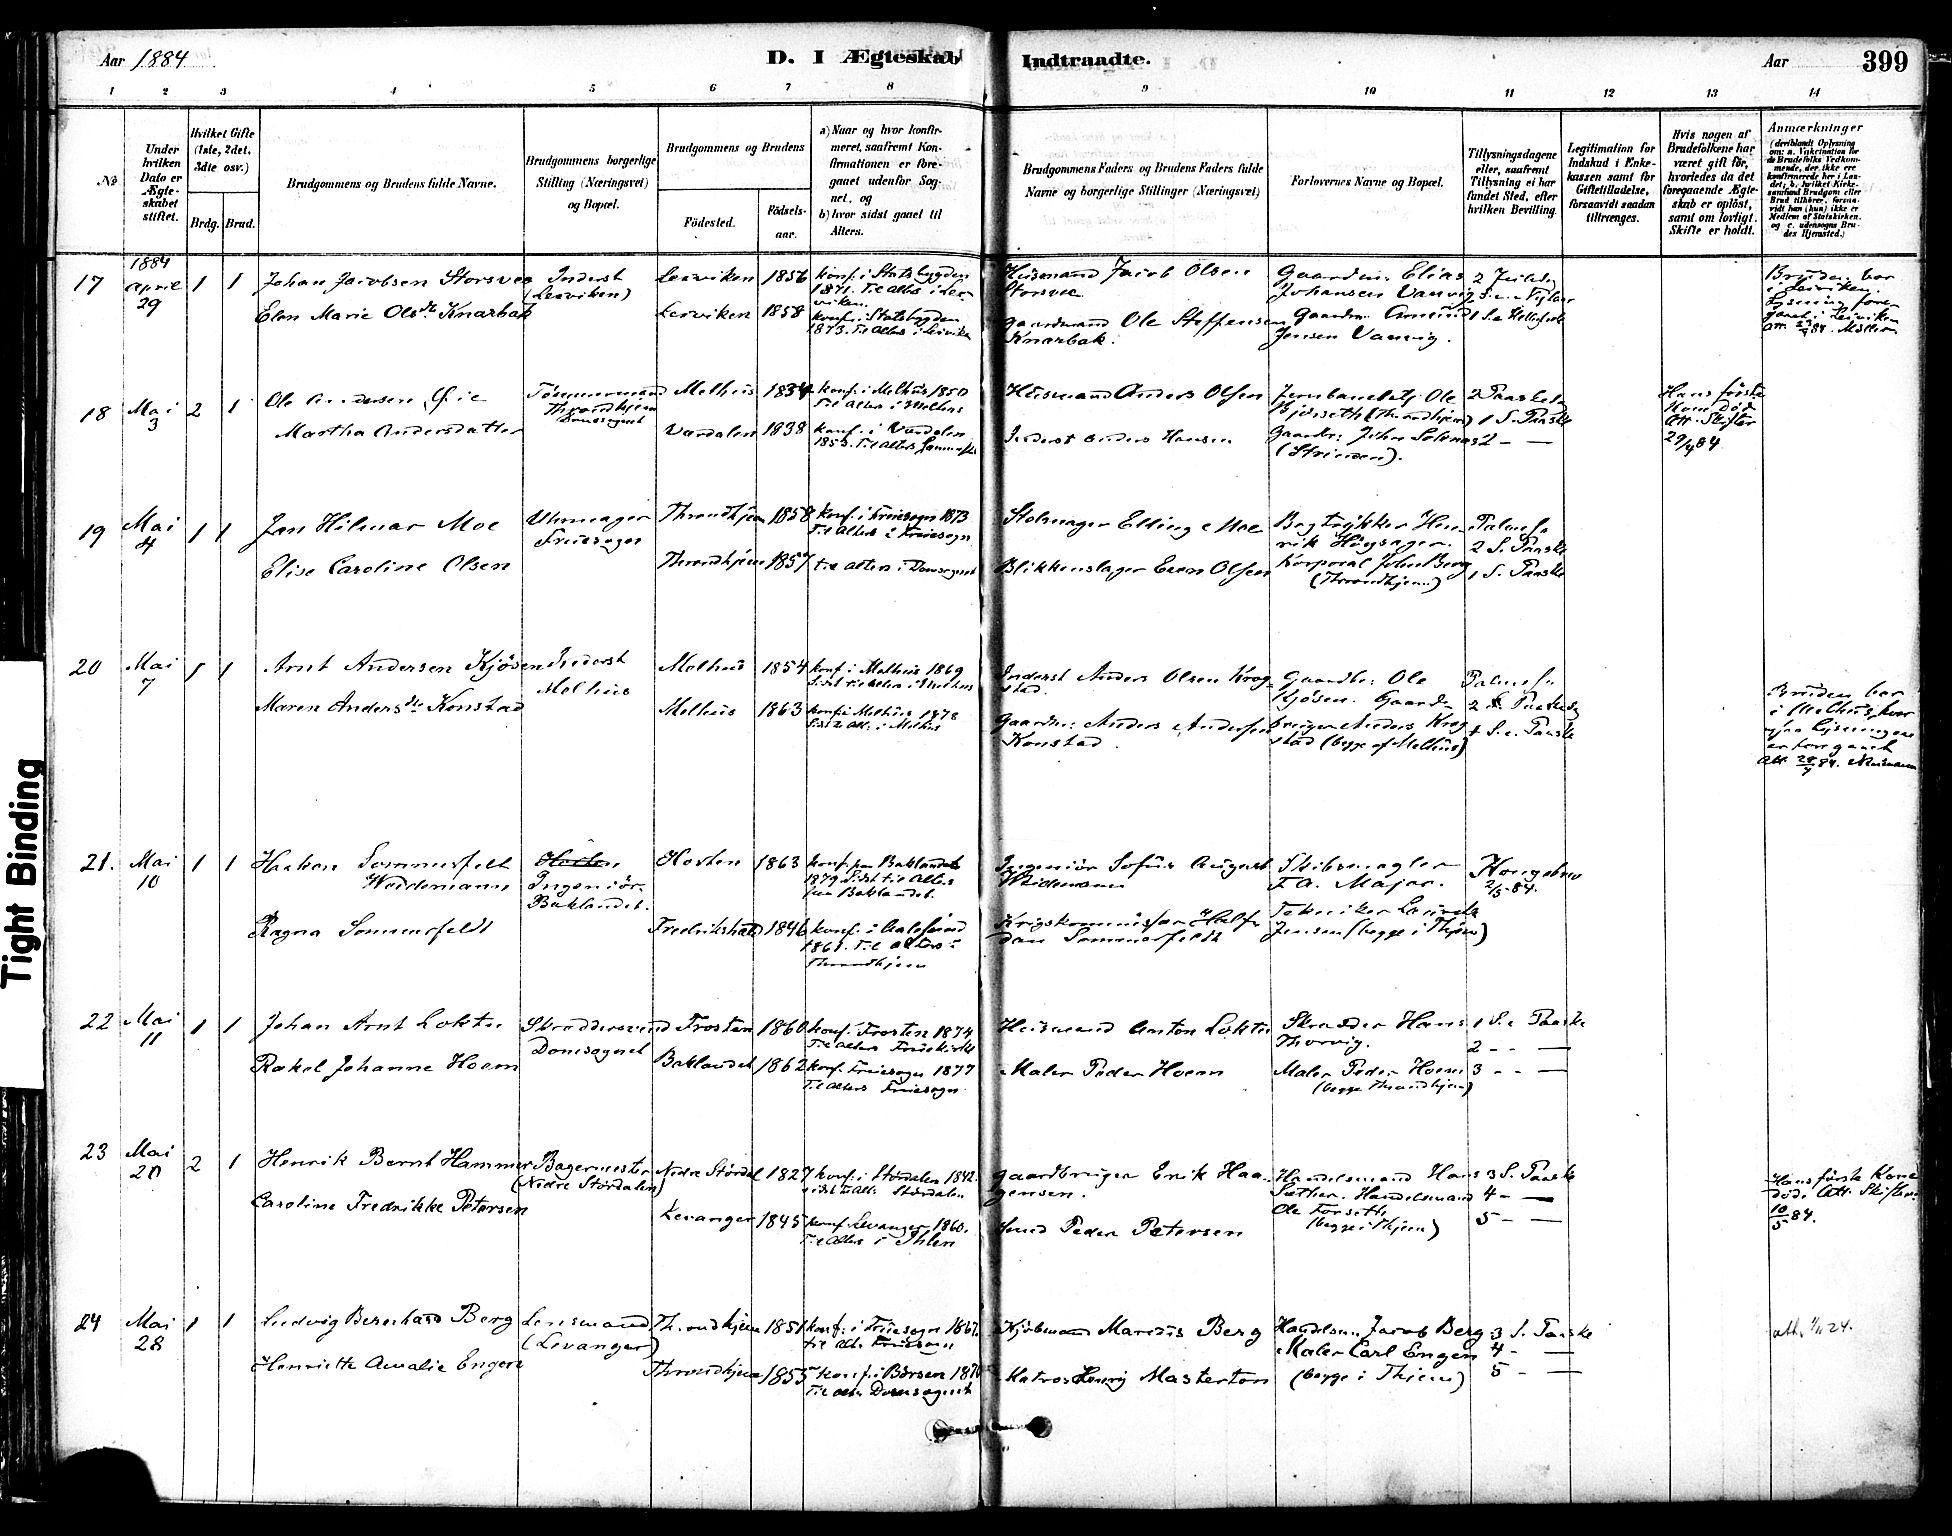 Aar 1884
D. I Ægteskab Indtraadte.
Aar
399
1 2 3 4 5 6 7 8 9 10 11 12 13 14
No
Under hvilken Dato er Ægteskabet stiftet.
Hvilket Gifte (1ste, 2det, 3die osv.)
Brdg. Brud.
Brudgommens og Brudens fulde Navne.
Brudgommens borgerlige Stilling (Næringsvei) og Bopæl.
Brudgommens og Brudens
Födested.
Födsels-aar.
a) Naar og hvor konfir-
meret, saafremt Kon-
firmationen er fore-
gaaet udenfor Sog-
net, og
b) hvor sidst gaaet til
Alters.
Brudgommens Faders og Brudens Faders fulde
Navne og borgerlige Stillinger (Næringsvei)
Forlovernes Navne og Bopæl.
Tillysningsdagene
eller, saafremt
Tillysning ei har
fundet Sted, efter
hvilken Bevilling.
Legitimation for
Indskud i Enke-
kassen samt for
Giftetilladelse,
forsaavidt saadan
tiltrænges.
Hvis nogen af
Brudefolkene har
været gift för,
hvorledes da det
foregaaende Ægte-
skab er oplöst,
samt om lovligt
Skifte er holdt.
Anmærkninger
(deriblandt Oplysning
om: a. Vakcination for
de Brudefolks Vedkom-
mende, der ikke ere
konfirmerede her i Lan-
det; b. hvilket Kirke-
samfund Brudgom eller
Brud tilhörer, forsaa-
vidt han (hun) ikke er
Medlem af Statskirken,
og c. udensogns Bru-
des Hjemsted.)
17 1884 April 29 1 1
Johan Jacobsen Storsve
Elen Marie Olsdtr Knarbak
Inderst
(Lexviken)
Lexviken 1856
Lexviken 1858
konf. i Statsbygden
1871. Til Alters i Lex-
viken.
konf. i Statsbygden
1873. Til Alters i Lexviken
Husmand Jacob Olsen
Storsve
Gaardmand Ole Steffensen
Knarbak.
Gaardm. Elias
Johansen Vanvig
Gaardm. Amund
Jensen Vanvig.
Bruden bor
i Lexviken.
Lysning fore-
gaaet i Lexviken
18 Mai 3 2 1
Ole Andersen Øie
Martha Andersdatter
Tömmermand
Throndhjem
Domsognet
Melhus 1834
Værdalen 1838
konf. i Melhus 1850
Til Alters i Melhus
konf. i Værdalen
1853. Til Alters
Husmand Anders Olsen
Inderst Anders Hansen
Ole
(Throndhjem)
Gaardbr. John
(Strinden).
2 Paaskedag
1 S. Paaske
2 - —
Hans förste
Kone död
Att. Skifter.
29/4 84.
19 Mai 4 1 1
Jon Hilmar Moe
Elise Caroline Olsen
Uhrmager
Fruesogn
Throndhjem 1858
Throndhjem 1857
konf. i Fruesogn 1873
Til Alters i Fruesogn
til Alters i Domsognet
Stolmager Elling Moe
Blikkenslager Even Olsen
Bogtrykker Hen-
rik Högsager.
Korporal John Berg
(Throndhjem)
Palmes.
2 S. Paaske
1 S. Paaske
20 Mai 7 1 1
Arnt Andersen Kjösen
Maren Andersdtr Konstad
Inderst
Melhus
Melhus 1854
Melhus 1863
konf. i Melhus 1869
Sidst til Alters i Melhus
konf. i Melhus 1878
Sidst Alt. i Melhus
Inderst Anders Olsen Krog-
stad.
Gaardm: Anders Andersen
Konstad.
Gaardbr. Ole
Kjösen. Gaard-
bruger Anders Krog-
stad (begge af Melhus)
Palmes.
2 Paaskedag
1 S. e. Paaske
Bruden bor
i Melhus, hvor
ogsaa Lysningen
er foregaaet
Att. 28/4 84.
21. Mai 10 1 1
Haakon Sommerfelt
Weddemann
Ragna Sommerfeldt
Ingeniör.
Baklandet.
Horten 1863
Fredrikshald 1846
konf. paa Baklandet
1879. Sidst til Alters
paa Baklandet.
konf. i Aalesund
1861. Til Alters i
Throndhjem
Ingeniör Sofus August
Widemann
Krigskommissær Half-
dan Sommerfeldt
Skibsmægler
F. A. Major.
Tekniker Laurits
Jensen (begge i Thjem)
Kongebrev
2/5-84.
22 Mai 11 1 1
Johan Arnt Loktu
Rakel Johanne Hoem
Skræddersvend
Domsognet
Frosten 1860
Baklandet 1862
konf. Frosten 1874
Til Alters Fruekirke
konf. Fruesogn 1877
Til Alters Fruesogn
Husmand Anton Loktu
Maler Peder Hoem
Skrædder Hans
Thorvig.
Maler Peder Hoem
(begge Throndhjem)
1 S. e Paaske
2 - - —
3 - - —
23 Mai 20 2 1
Henrik Bernt Hammer
Caroline Fredrikke Petersen
Bagermester
(Nedre Stördalen)
Nedre Stördal 1827
Levanger 1845
konf. i Stördalen 1842.
sidst til Alt. Stördalen
konf. Levanger 1860.
Til Alters i Ihlen
Gaardbruger Erik Haa-
gensen.
Smed Peder Petersen
Handelsmand Hans
Sæther. Handelsmand
Ole Forseth
(begge i Thjem)
3 S. Paaske
4 - —
5 - —
Hans förste Kone
död. Att. Skifter.
10/5 84.
24 Mai 28 1 1
Ludvig Bernhard Berg
Henriette Amalie Engen
Lensmand
(Levanger)
Throndhjem 1851
Throndhjem 1855
konf. i Fruesogn 1867.
til Alt. Fruesogn
konf. i Börsen 1870
Til Alter Domsognet
Kjöbmand Marius Berg
Matros Henry Masterton
Handelsm. Jacob Berg
Maler Carl Engen
(begge i Thjem)
3 S. Paaske
4 - —
5 - —
Tight Binding